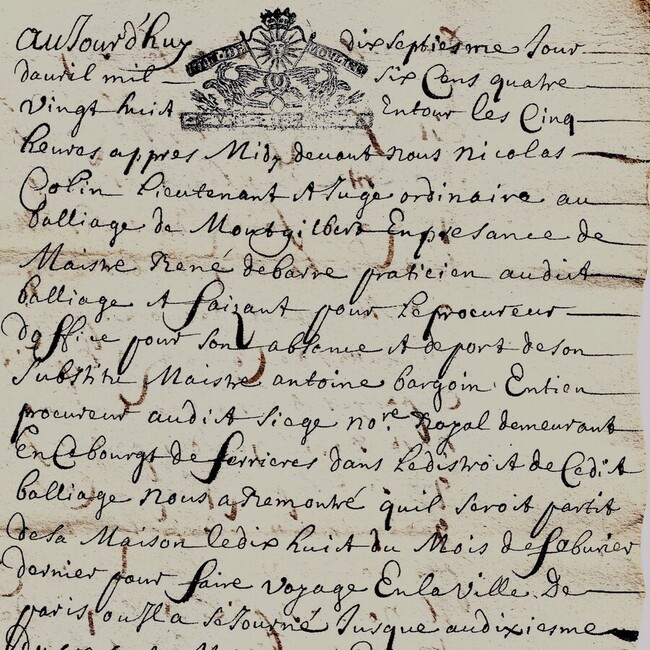 auJourd'huy dix septiesme Jour
dauril mil six Cens quatre
vingt huit Entour les Cinq
heures appres Midy deuant nous nicolas
Colin lieutenant & Juge ordinaire au
balliage de Montgilbert Enpresance de
Maistre René debarre praticien audict
balliage & faizant pour Leprocureur
doffice pour son absance & deport deson
substitu Maistre antoine bargoin Entien
procureur audict siege no.re Royal demeurant
En Cebourgt de ferrieres dans Ledistroict de Cedict
balliage nous a Remontré quil seroit partit
desa Maison ledix huit du Mois de feburier
dernier pour faire voyage En la Ville De
paris ou Jl a séJourné Jusque audixiesme